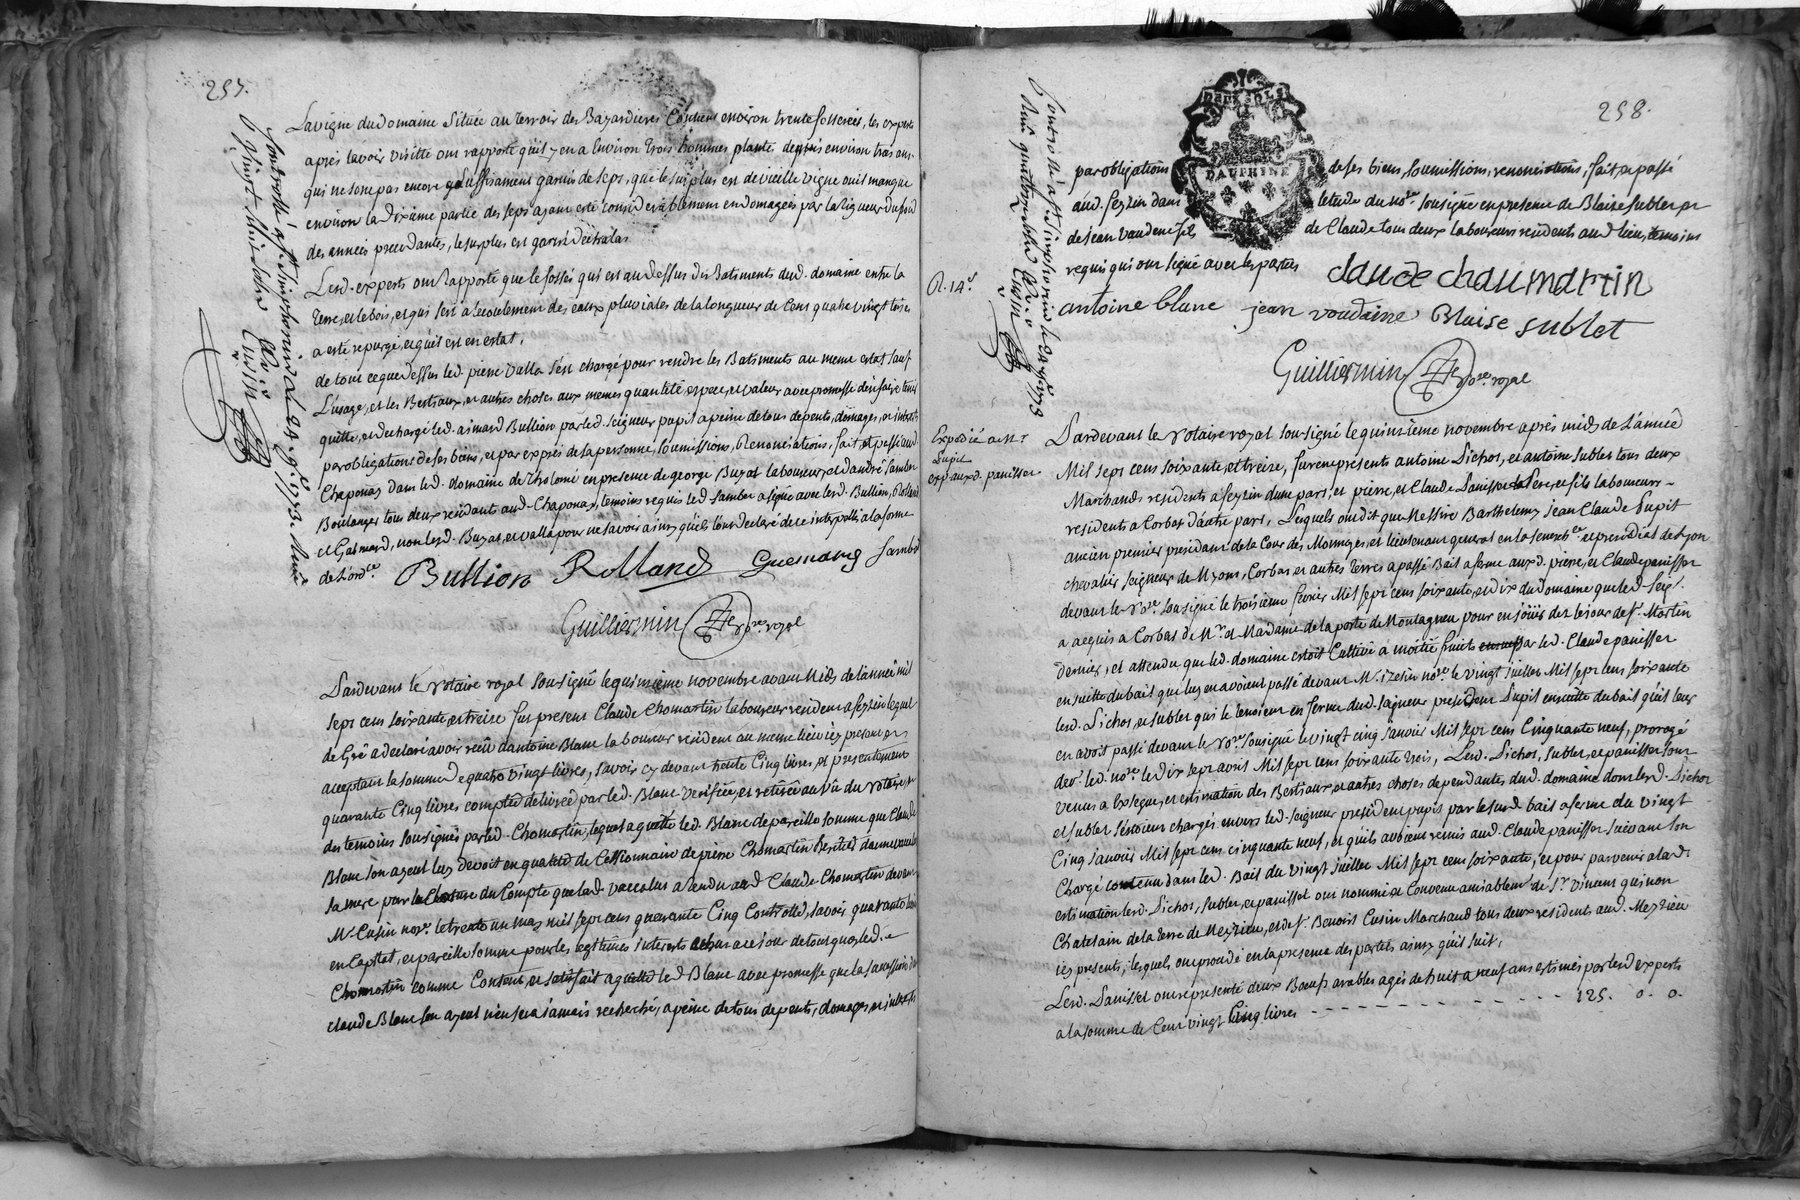 257.
La vigne du domaine située au terroir des Bayardieres Contient environ trente fosserées, les experts
après lavoir visitté ont rapporté quil y en a Environ trois hommes planté depuis environ trois ans
qui ne sont pas encore suffisament garnis de seps, que le surplus en de vieille vigne ou il manque
environ la dixième partie des seps ayant esté considerablement endomagées par la rigueur du froid
des années precedantes, le surplus est garni d'échalas
Lesd. experts ont Rapporté que le fossé qui est au dessus des Batiments dud. domaine entre la
terre, et le bois, et qui sert à lecoulement des eaux pluviales de la longueur de Cent quatre vingt toises
a esté repurgé, et quil est en estat,
de tout ce que dessus led. pierre Valla s'est chargé pour rendre les Batiments au meme estat sauf
L'usage, et les Bestiaux, et autres choses aux memes quantité espece, et valeur avec promesse d'en faire tenir
quitte, et dechargé led. aimard Bullion par led. seigneur pupil a peine de tous depents, domages, et interests
par obligations de ses biens, et par exprès de sa personne, soumissions, Renonciations, fait, et passé aud.
Chaponay dans led. domaine de Tholomé en presence de george Buyat laboureur, et d'andré Sambet
Boulanger tous deux residants aud. Chaponay, temoins requis led Sambet a signé avec lesd. Bullion, Rolland
et Guemard, non lesd. Buyat, et valla pour ne savoir ainsy qu'ils l'ont declaré de ce interpellés a la forme
de L'ord.ce
Bullion Rolland Guemard Sambet
Guilliermin No.re royal
Pardevant le Notaire royal soussigné le quinzieme novembre avant Midy de l'année mil
sept cens soixante, et treize fut present Claude Chomartin laboureur residant a seyzin lequel
de Gré a declaré avoir reçû d'antoine Blanc laboureur residant au meme lieu icy present et
acceptant la somme de quatre vingt livres, savoir cy devant trente Cinq livres, et presentement
quarante Cinq livres comptée delivrée par led. Blanc verifiée, et retirée au vû du Notaire et
des temoins soussignés par led. Chomartin, lequel a quitté led. Blanc de pareille somme que Claude
Blanc son ayeul luy devoit en qualité de Cessionnaire de pierre Chomartin
sa mere par la Cloture du Compte que lad. a rendu aud Claude Chomartin devant
M.e Cusin not.e le trente un may mil sept cens quarante Cinq Controllé, savoir quarante livres
en Capital, et pareille somme pour les legitimes interests a ce jour de tout quoy led.
Chomartin comme Content, et satisfait a quitté led Blanc avec promesse que la succession de
claude Blanc son ayeul n'en sera jamais recherchée, a peine de tous depents, domages, et interests
258.
DAUPHINÉ
par obligations de ses biens, soumissions, renonciations, fait, et passé
aud. seyzin dans letude du no.re soussigné en presence de Blaise Sublet et
de jean Vaudene fils de Claude tous deux laboureurs residents aud lieu, temoins
requis qui ont signé avec les parties Claude chaumartin
R. 14 s.
antoine blanc jean voudaine Blaise sublet
Guilliermin No.re royal
Expedié a Mr
Pupil
exp aux d. panisset
Pardevant le Notaire royal soussigné le quinzieme novembre après midy de L'année
Mil sept cens soixante, et treize, furent presents antoine Pichot, et antoine Sublet tous deux
Marchands residents a Seyzin d'une part, et pierre, et Claude Panisset Pere, et fils laboureurs
residents a Corbas d'autre part, Lesquels ont dit que Messire Barthelemy Jean Claude Pupil
ancien premier president de la Cour des Monnoyes, et lieutenant general en la Senech.ée et presidial de Lyon
chevalier Seigneur de Myons, Corbas et autres terres a passé Bail a ferme auxd. pierre, et Claude panisset
devant le No.re soussigné le troisieme fevrier Mil sept cens soixante, et dix du domaine que led. Seig.r
a acquis a Corbas de Mr. et Madame de la porte de Montagneu pour en jouir dez le jour de S.t Martin
dernier, et attendu que led. domaine estoit Cultivé a moitié fruits par led. Claude panisset
en suitte du bail que luy en avoient passé devant M.e izerin no.re le vingt juillet Mil sept cens soixante
lesd. Pichot, et sublet qui le tenoient en ferme dud. seigneur president Pupil ensuitte du bail qu'il leur
en avoit passé devant le No.re soussigné le vingt cinq janvier Mil sept cens Cinquante neuf, prorogé
dev.t led. no.re le dix sept avril Mil sept cens soixante trois, Lesd. Pichot, sublet, et panisset sont
venus a lexsegue, et estimation des Bestiaux, et autres choses dependantes dud. domaine dont lesd. Pichot
et Sublet s'estoient chargés envers led. seigneur president pupil par le susd bail a ferme du vingt
Cinq janvier Mil sept cens cinquante neuf, et qu'ils avoient remis aud. Claude panisset suivant son
Chargé contenu dans led. Bail du vingt juillet Mil sept cens soixante, et pour parvenir a lad.
estimation lesd. Pichot, sublet, et panisset ont nommé et Convenu amiablem.t de S.r Vincent quinon
Chatelain de la terre de Meyzieu, et de S.r Benoit Cusin Marchand tous deux residents aud. Meyzieu
icy presents, lesquels ont procedé en la presence des parties ainsy qu'il suit,
Lesd. Panisset ont representé deux Bœufs arables agés de huit a neuf ans estimés par lesd experts
a la somme de Cent vingt Cinq livres - - - - - - - - - - - - 125. 0. 0.